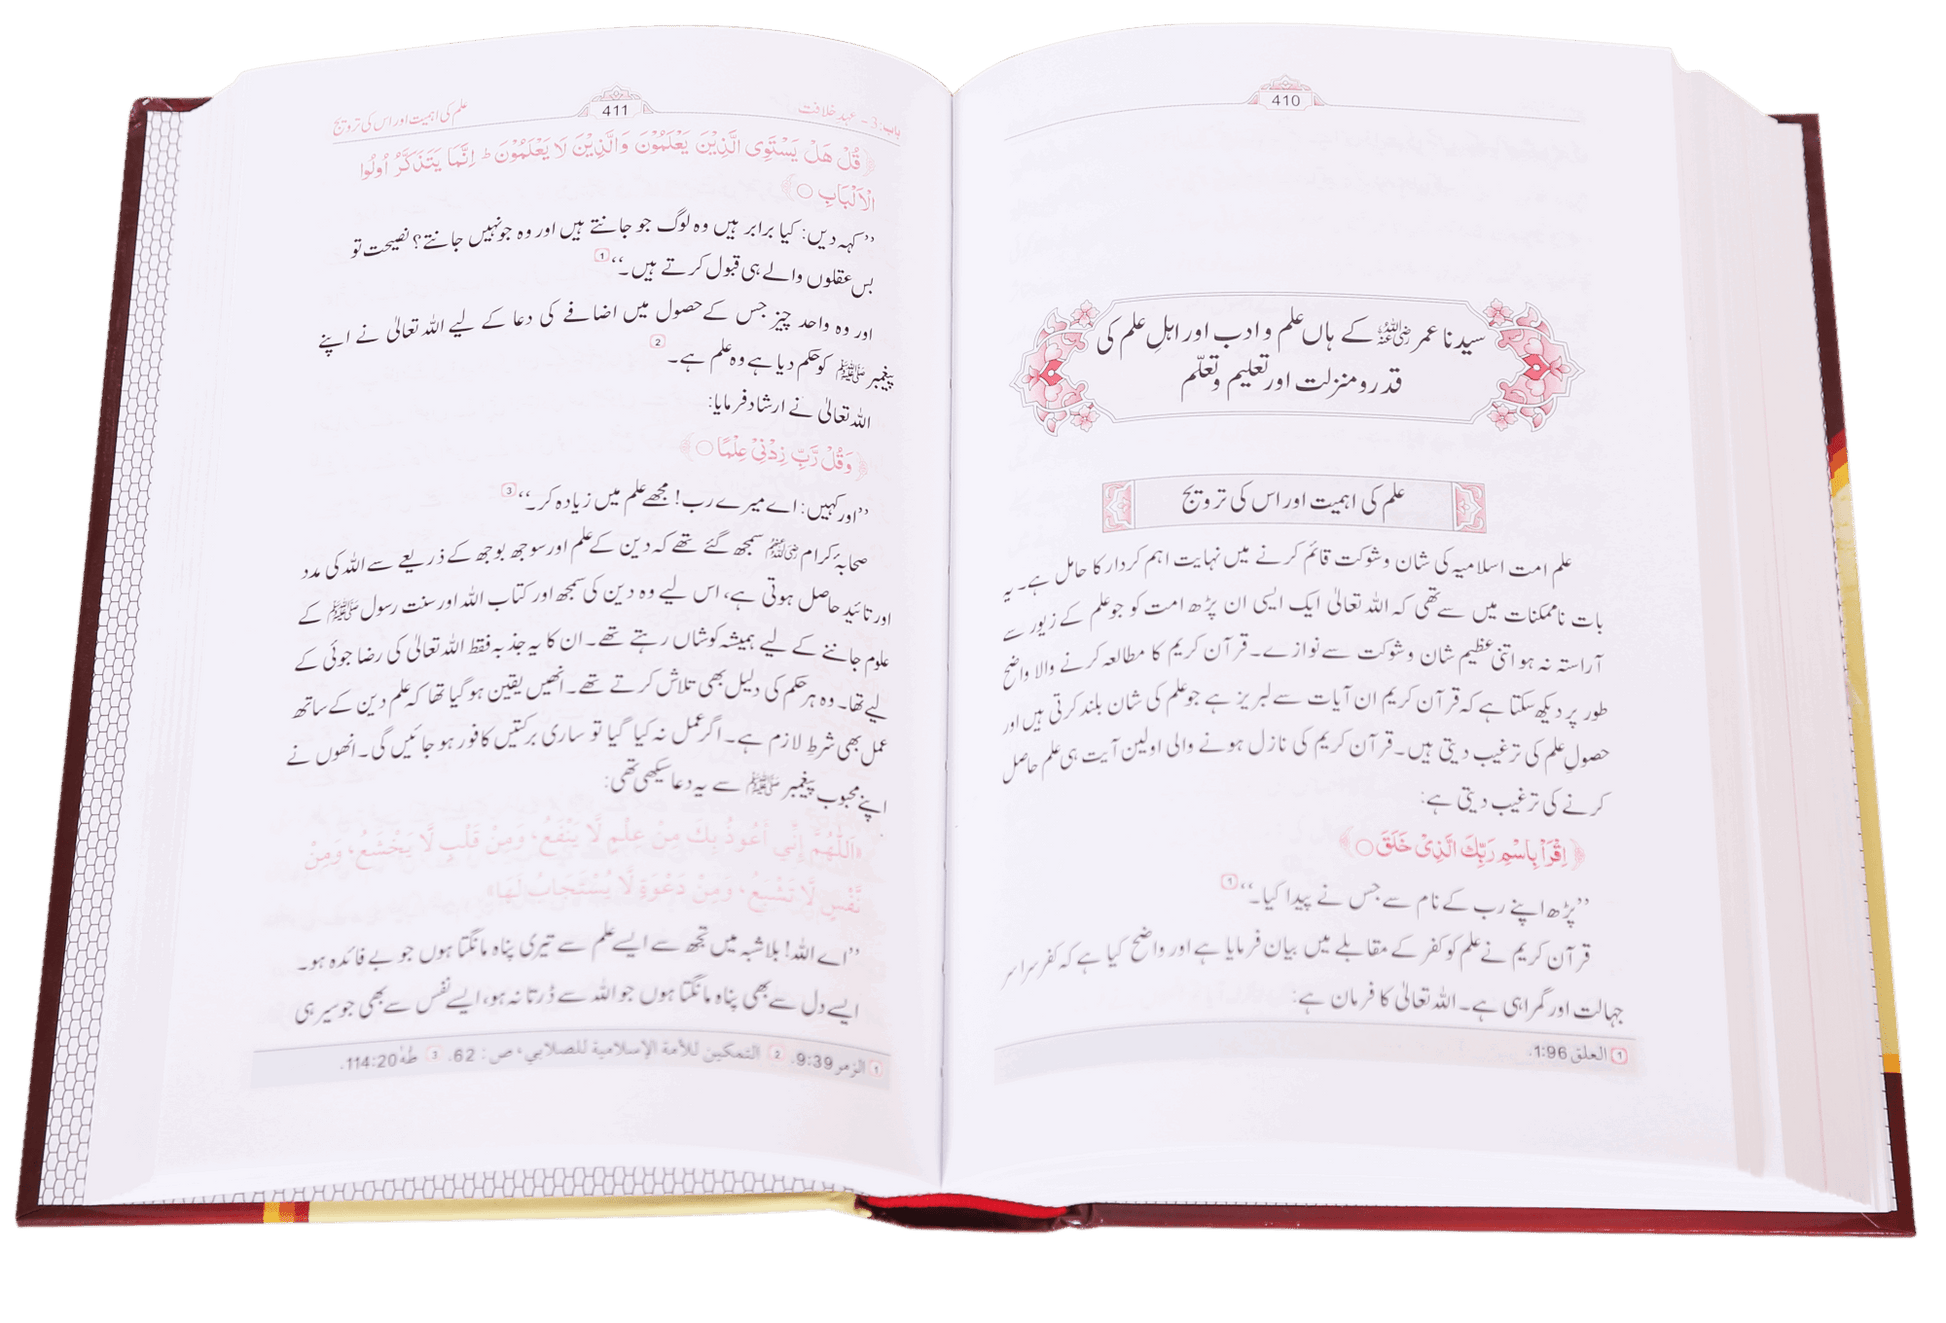 410
سیدنا عمر رضی اللہ عنہ کے ہاں علم و ادب اور اہلِ علم کی
قدر و منزلت اور تعلیم و تعلّم
علم کی اہمیت اور اس کی ترویج
علم امت اسلامیہ کی شان و شوکت قائم کرنے میں نہایت اہم کردار کا حامل ہے۔ یہ
بات ناممکنات میں سے تھی کہ اللہ تعالیٰ ایک ایسی ان پڑھ امت کو جو علم کے زیور سے
آراستہ نہ ہو اتنی عظیم شان و شوکت سے نوازے۔ قرآن کریم کا مطالعہ کرنے والا واضح
طور پر دیکھ سکتا ہے کہ قرآن کریم ان آیات سے لبریز ہے جو علم کی شان بلند کرتی ہیں اور
حصولِ علم کی ترغیب دیتی ہیں۔ قرآن کریم کی نازل ہونے والی اولین آیت ہی علم حاصل
کرنے کی ترغیب دیتی ہے:
﴿اِقْرَاْ بِاسْمِ رَبِّكَ الَّذِیْ خَلَقَ ○﴾
’’پڑھ اپنے رب کے نام سے جس نے پیدا کیا۔‘‘ 1
قرآن کریم نے علم کو کفر کے مقابلے میں بیان فرمایا ہے اور واضح کیا ہے کہ کفر سراسر
جہالت اور گمراہی ہے۔ اللہ تعالیٰ کا فرمان ہے:
1 العلق 1:96.
باب: 3 - عہد خلافت 411 علم کی اہمیت اور اس کی ترویج
﴿قُلْ هَلْ یَسْتَوِی الَّذِیْنَ یَعْلَمُوْنَ وَالَّذِیْنَ لَا یَعْلَمُوْنَ ط اِنَّمَا یَتَذَكَّرُ اُولُوا
الْاَلْبَابِ ○﴾
’’کہہ دیں: کیا برابر ہیں وہ لوگ جو جانتے ہیں اور وہ جو نہیں جانتے؟ نصیحت تو
بس عقلوں والے ہی قبول کرتے ہیں۔‘‘ 1
اور وہ واحد چیز جس کے حصول میں اضافے کی دعا کے لیے اللہ تعالیٰ نے اپنے
پیغمبر ﷺ کو حکم دیا ہے وہ علم ہے۔ 2
اللہ تعالیٰ نے ارشاد فرمایا:
﴿وَقُلْ رَّبِّ زِدْنِیْ عِلْمًا ○﴾
’’اور کہیں: اے میرے رب! مجھے علم میں زیادہ کر۔‘‘ 3
صحابۂ کرام رضی اللہ عنہم سمجھ گئے تھے کہ دین کے علم اور سوجھ بوجھ کے ذریعے سے اللہ کی مدد
اور تائید حاصل ہوتی ہے، اس لیے وہ دین کی سمجھ اور کتاب اللہ اور سنت رسول ﷺ کے
علوم جاننے کے لیے ہمیشہ کوشاں رہتے تھے۔ ان کا یہ جذبہ فقط اللہ تعالیٰ کی رضا جوئی کے
لیے تھا۔ وہ ہر حکم کی دلیل بھی تلاش کرتے تھے۔ انھیں یقین ہو گیا تھا کہ علم دین کے ساتھ
عمل بھی شرط لازم ہے۔ اگر عمل نہ کیا گیا تو ساری برکتیں کافور ہو جائیں گی۔ انھوں نے
اپنے محبوب پیغمبر ﷺ سے یہ دعا سیکھی تھی:
«اَللّٰهُمَّ إِنِّي أَعُوذُ بِكَ مِنْ عِلْمٍ لَّا يَنْفَعُ، وَمِنْ قَلْبٍ لَّا يَخْشَعُ، وَمِنْ
نَّفْسٍ لَّا تَشْبَعُ، وَمِنْ دَعْوَةٍ لَّا يُسْتَجَابُ لَهَا»
’’اے اللہ! بلاشبہ میں تجھ سے ایسے علم سے تیری پناہ مانگتا ہوں جو بے فائدہ ہو۔
ایسے دل سے بھی پناہ مانگتا ہوں جو اللہ سے ڈرتا نہ ہو، ایسے نفس سے بھی جو سیر ہی
1 الزمر 9:39. 2 التمكين للأمة الإسلامية للصلابي، ص: 62. 3 طٰهٰ 114:20.